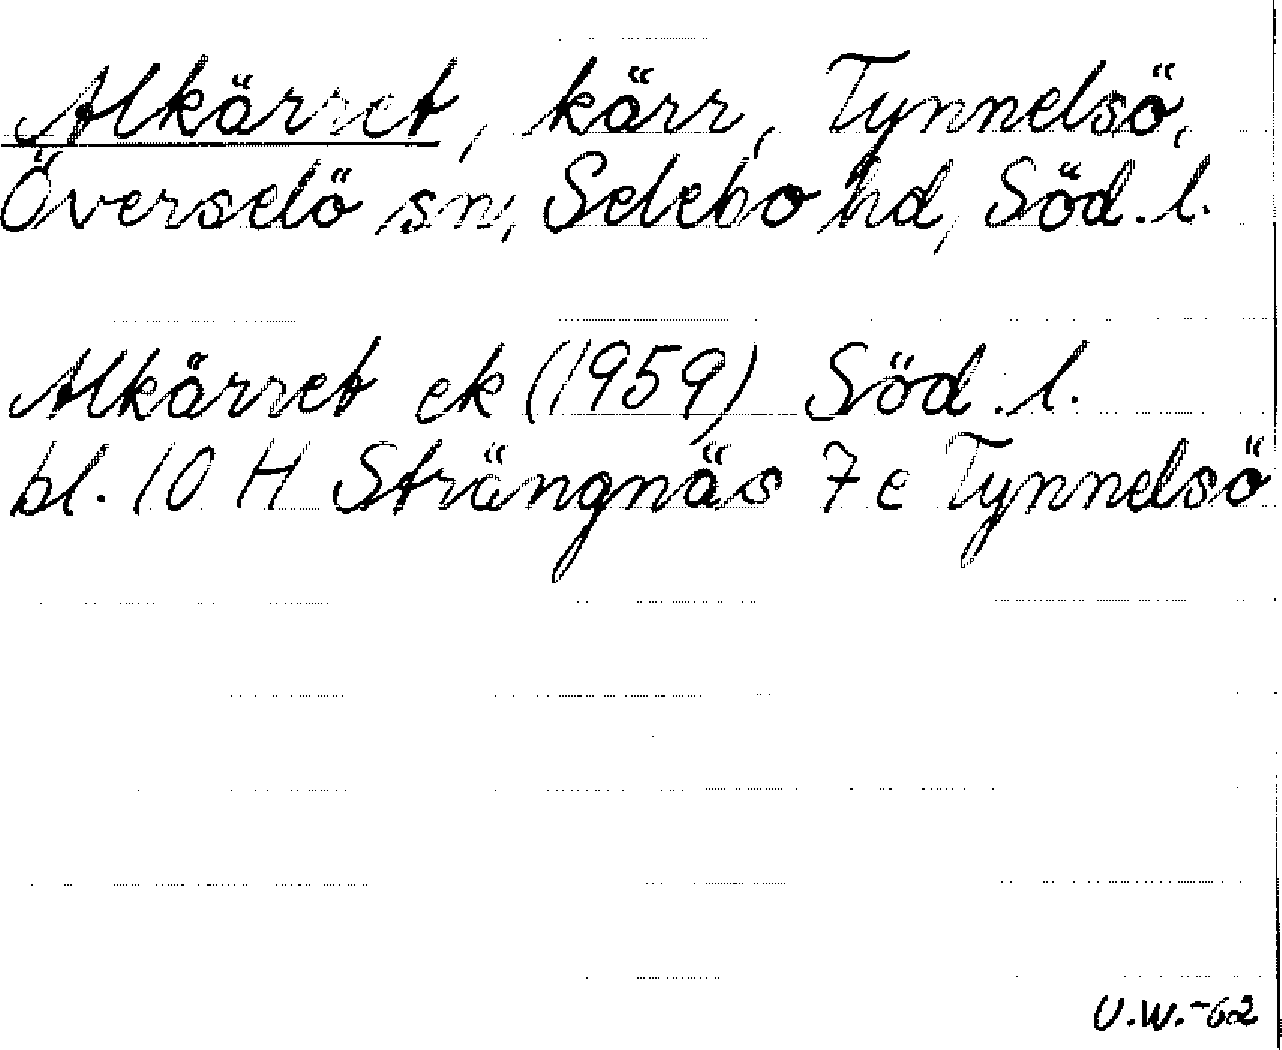 Alkärret, kärr, Tynnelsö,
Överselö sn, Selebo hd, Söd. l.
Alkärret ek (1959) Söd. l.
bl. 10 H Strängnäs 7 e Tynnelsö
U.W.-62